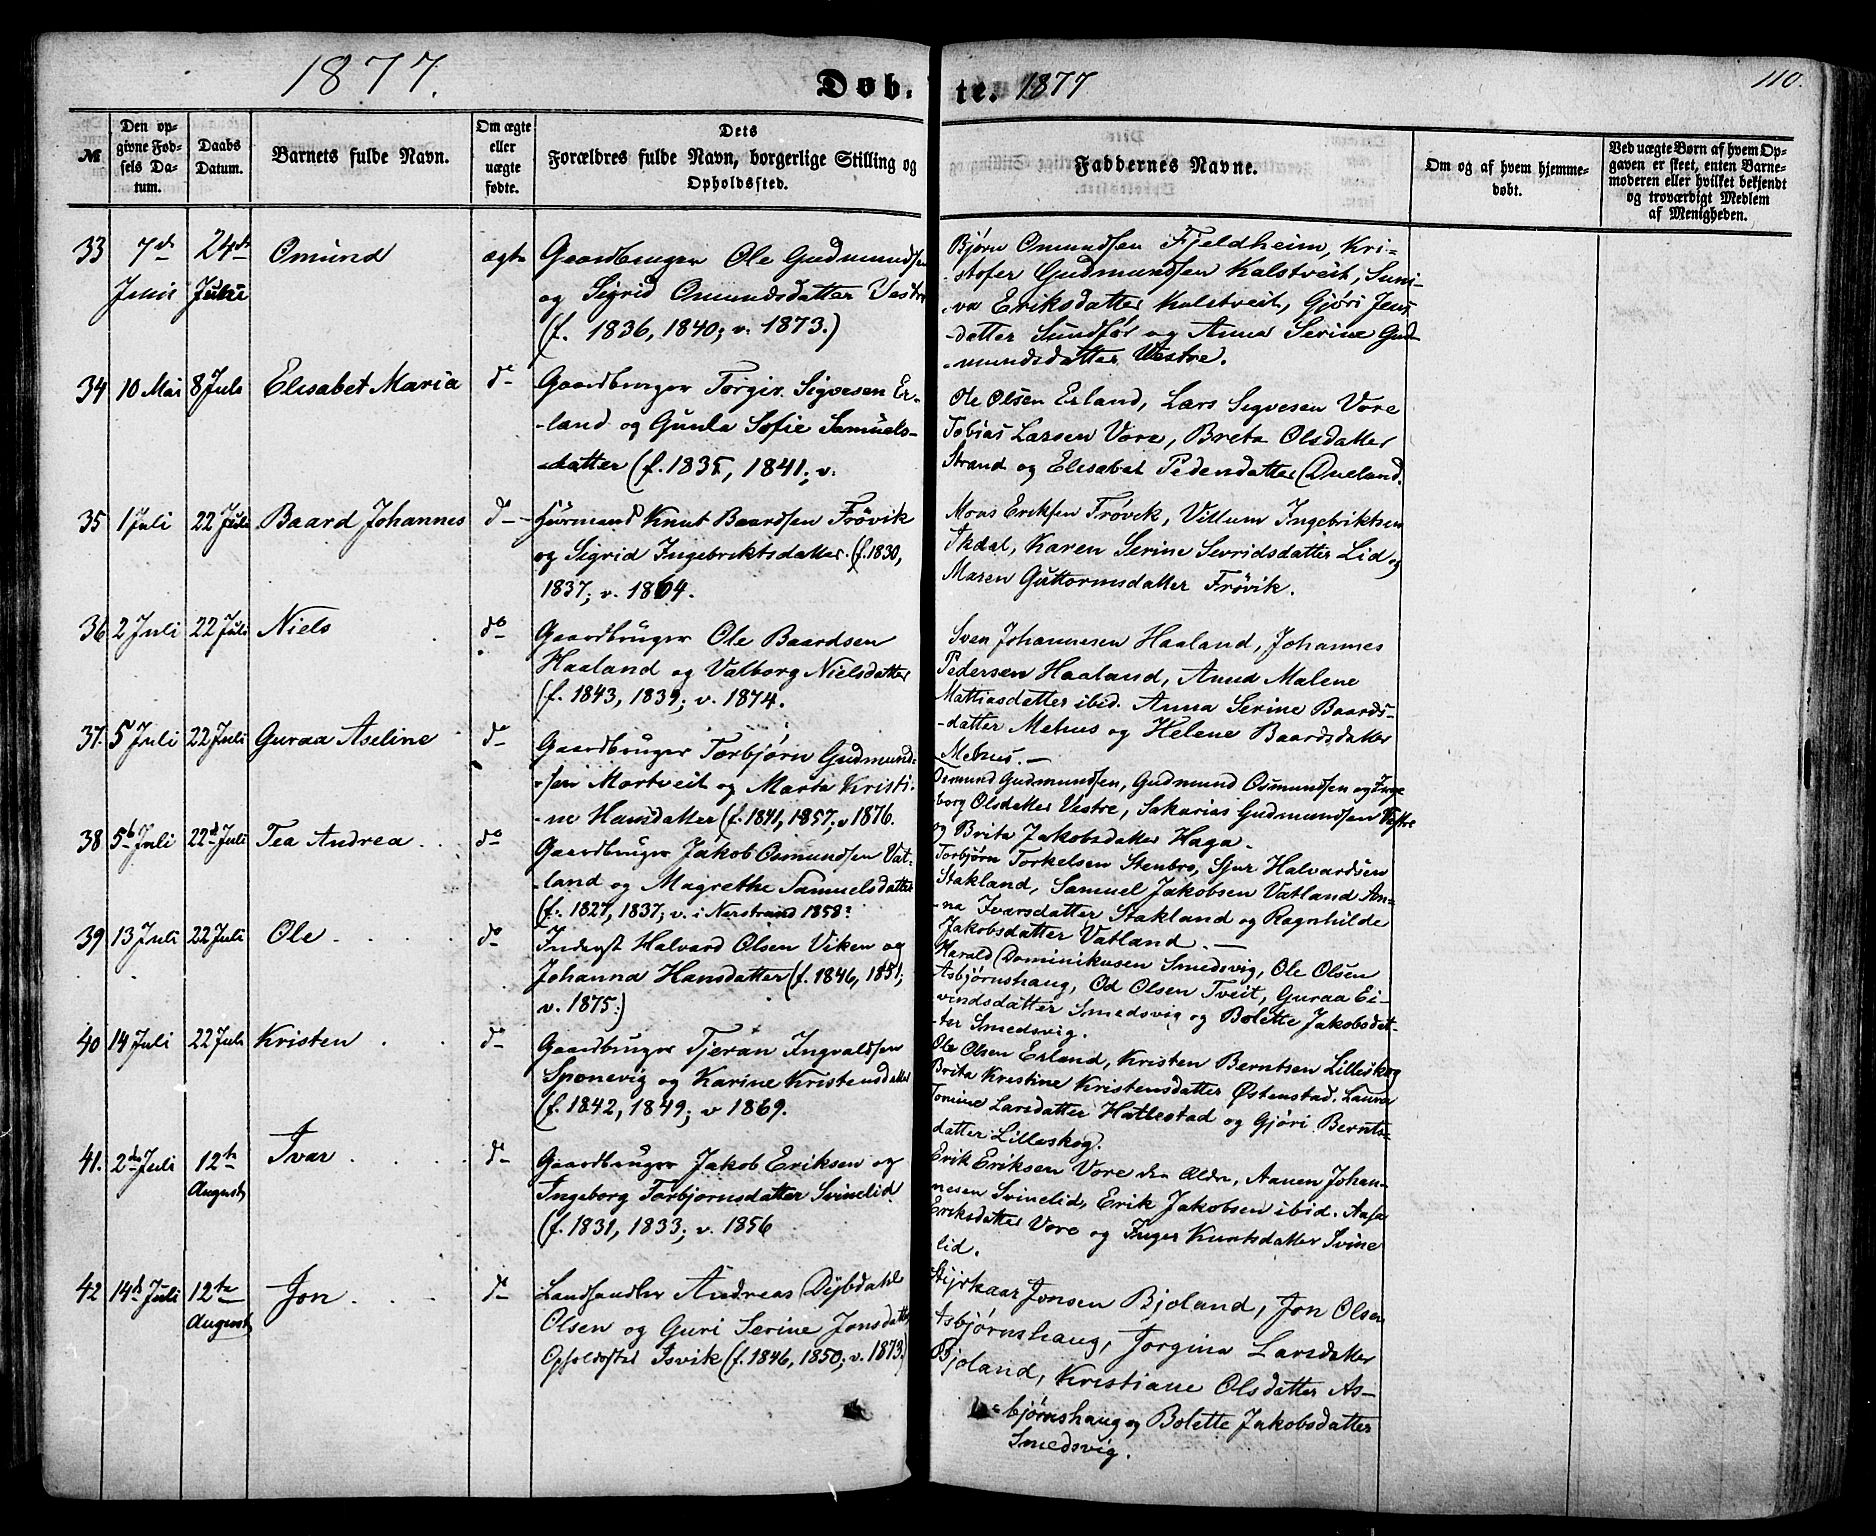 1877.
Døb. te. 1877
110.
№
Den opgivne Fødsels Datum.
Daabs Datum.
Barnets fulde Navn.
Om ægte eller uægte fødte.
Dets Forældres fulde Navn, borgerlige Stilling og Opholdssted.
Faddernes Navne.
Om og af hvem hjemmedøbt.
Ved uægte Børn af hvem Opgaven er skeet, enten Barnemoderen eller hvilket bekjendt og troværdigt Medlem af Menigheden.
33 7de Juni 24de Juni Omund ægte
Gaardbruger Ole Gudmundsen
og Sigrid Omundsdatter Vestre
(f. 1836, 1840; v. 1873.)
Bjørn Omundsen Fjeldheim, Kri-
-stofer Gudmundsen Kalstveit, Suni-
-va Eriksdatter Kalstveit, Gjøri Jens
-datter Sundfør og Anna Serine Gud-
-mundsdatter Vestre.
34 10 Mai 8 Juli Elisabet Maria do
Gaardbruger Torgir Sigvesen Er-
-land og Gunla Sofie Samuels-
-datter (f. 1835, 1841; v.
Ole Olsen Erland, Lars Sigvesen Vore
Tobias Larsen Vore, Breta Olsdatter
Strand og Elisabet Pedersdatter Dueland.
35 1 Juli 22 Juli Baard Johannes do
Huusmand Knut Baardsen Frövik
og Sigrid Ingebriktsdatter. (f. 1830,
1837; v. 1864.
Mons Eriksen Frøvik, Villum Ingebriktsen
Akdal, Karen Serine Sevridsdatter Lid og
Maren Guttormsdatter Frövik.
36 2 Juli 22 Juli Niels do
Gaardbruger Ole Baardsen
Haaland og Valborg Nielsdatter
(f. 1843, 1839; v. 1874.
Sven Johannesen Haaland, Johannes
Pedersen Haaland, Anna Malene
Mattiasdatter ibid. Anna Serine Baards-
-datter Mehus og Helene Baardsdatter
Mehus. —
37. 5 Juli 22 Juli Guraa Aseline do
Gaardbruger Torbjørn Gudmund-
-sen Mortveit og Marta Kristi-
-ne Hansdatter (f. 1841, 1857; v 1876.
Osmund Gudmundsen, Gudmund Osmundsen og Inge
borg Olsdatter Vestre, Sakarias Gudmundsen Vestre
og Brita Jakobsdatter Haga.
38 5te Juli 22de Juli Tea Andrea do
Gaardbruger Jakob Osmundsen Vat-
-land og Magrethe Samuelsdatter
(f. 1827, 1837; v. i Nerstrand 1858?
Torbjørn Torkelsen Stenbro, Sjur Halvardsen
Stakland, Samuel Jakobsen Vatland An-
-na Ivarsdatter Stakland og Ragnhilde
Jakobsdatter Vatland. —
39 13 Juli 22 Juli Ole do
Inderst Halvard Olsen Viken og
Johanna Hansdatter (f. 1846, 1851;
v. 1875.)
Harald Dominikusen Smedsvig, Ole Olsen
Asbjørnshaug, Od Olsen Tveit, Guraa Ei-
vindsdatter Smedsvig og Bolette Jakobsdat-
-ter Smedsvig.
40 14 Juli 22 Juli Kristen do
Gaardbruger Tjeran Ingvaldsen
Sponevig og Karine Kristensdatter
(f. 1842, 1849; v 1869.
Ole Olsen Erland, Kristen Berntsen Lilleskog
Brita Kristine Kristensdatter Østenstad. Laura
Tomine Larsdatter Hattestad og Gjöri Bernts-
datter Lilleskog.
41. 2de Juli 12te August Ivar do
Gaardbruger Jakob Eriksen og
Ingeborg Torbjørnsdatter Svinelid
(f. 1831, 1833; v. 1856
Erik Eriksen Vore den Ældre, Aanen Johan-
nesen Svinelid, Erik Jakobsen ibid. Aasa
Eriksdatter Vore og Inger Knutsdatter Svine
lid.
42 14de Juli 12te August Jon do
Landhandler Andreas Dybdahl
Olsen og Guri Serine Jonsdatter
Opholdssted Isvik (f. 1846, 1850; v. 1873.)
Styrkaar Jonsen Bjoland, Jon Olsen
Asbjørnshaug, Jorgina Larsdatter
Bjoland, Kristiane Olsdatter As-
-bjørnshaug og Bolette Jakobsdatter
Smedsvig.